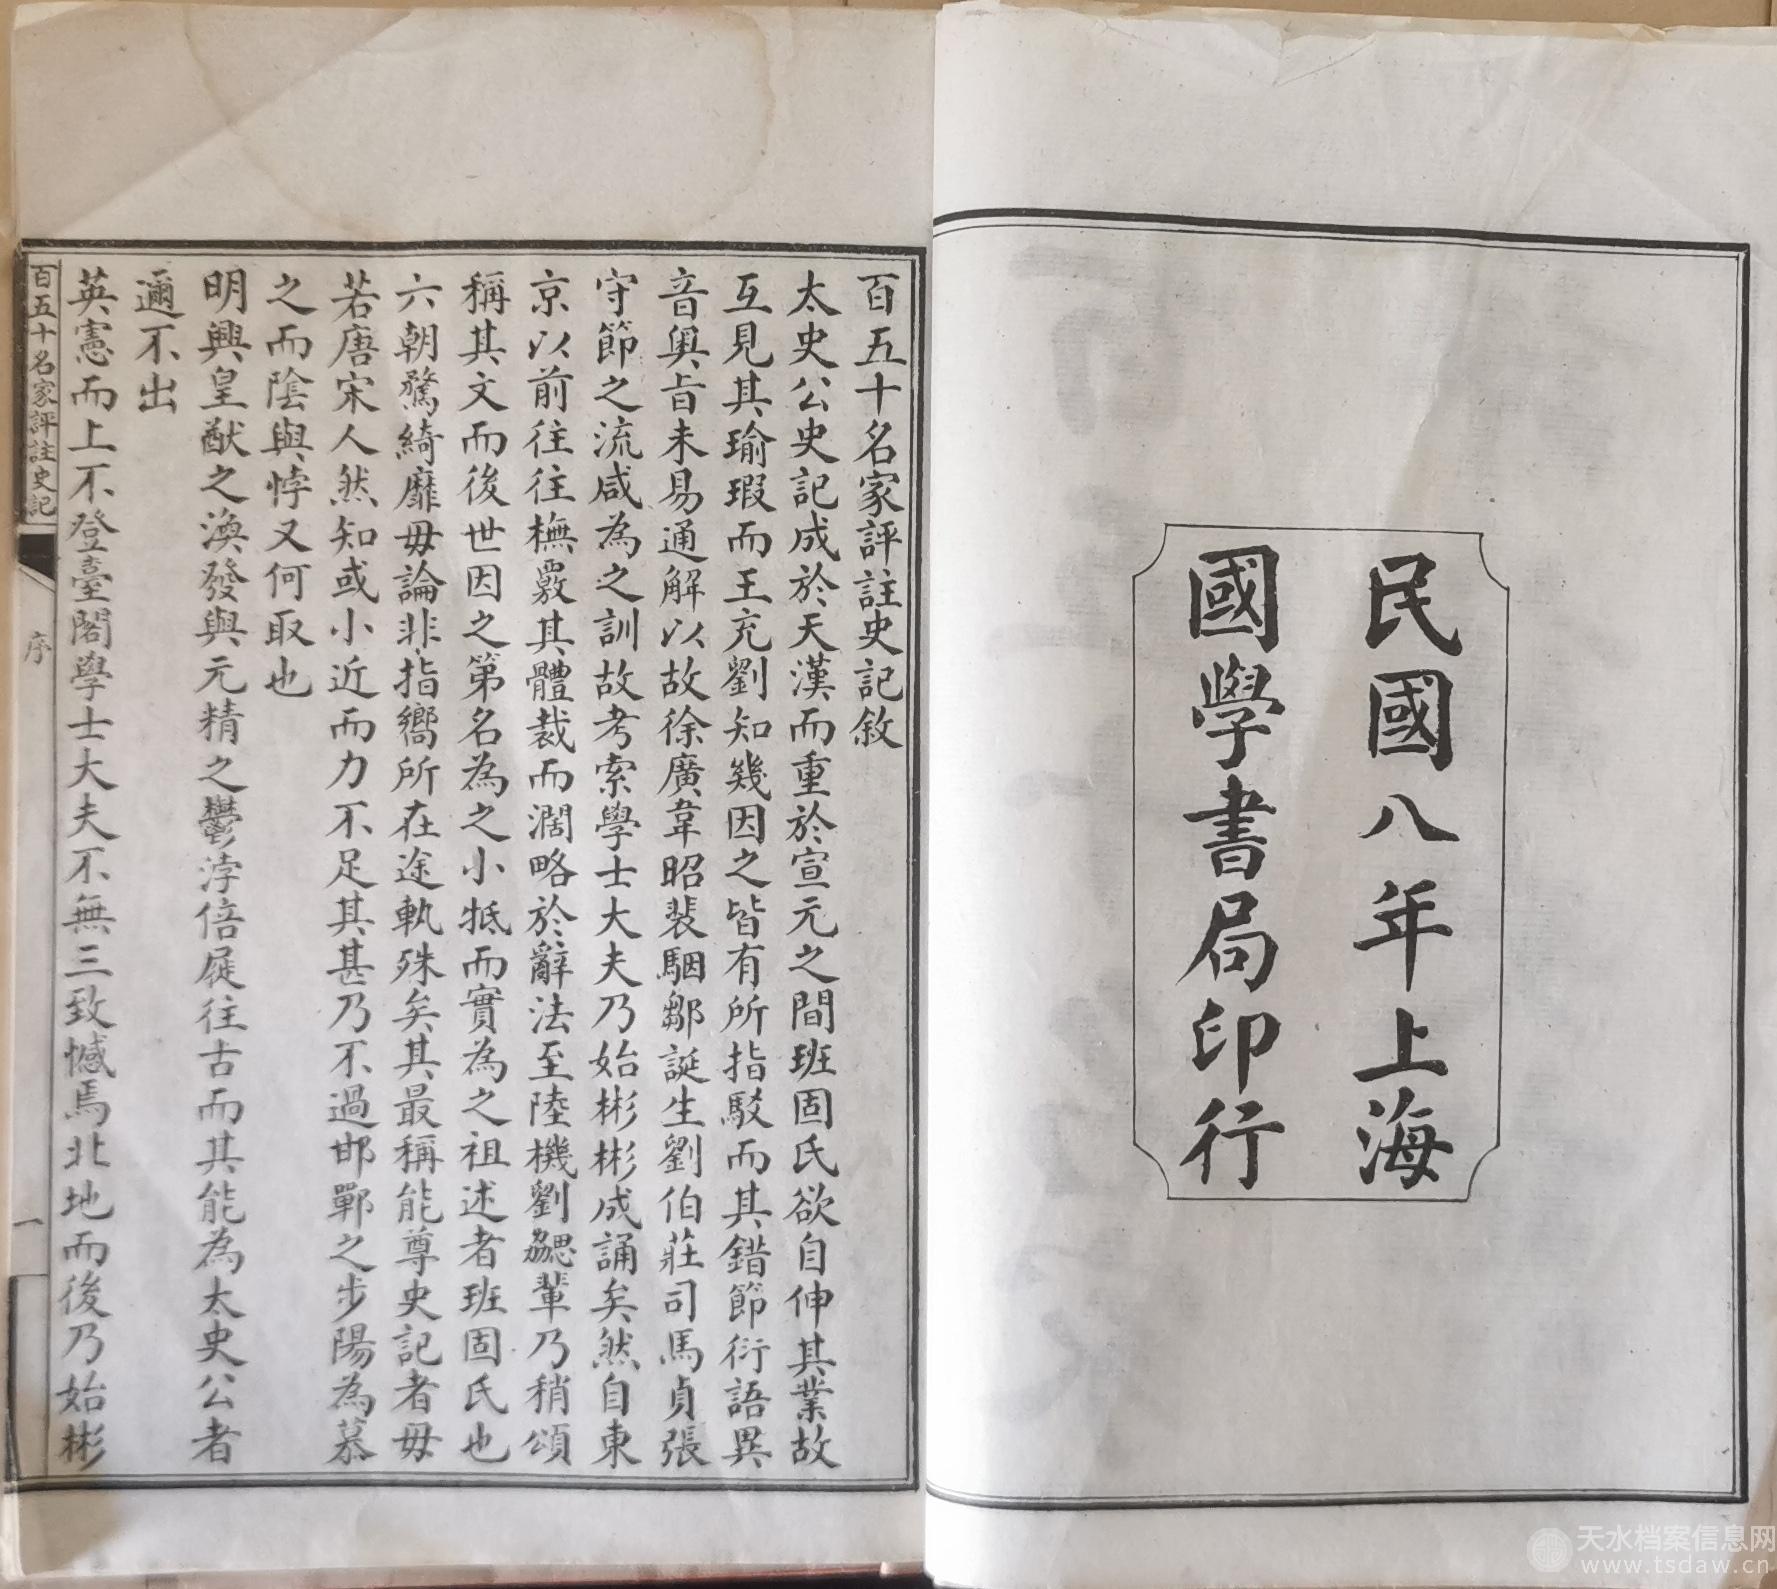 民國八年上海
國學書局印行
百五十名家評註史記敘
太史公史記成於天漢而重於宣元之間班固氏欲自伸其業故
互見其瑜瑕而王充劉知幾因之皆有所指駁而其錯節衍語異
音奧旨未易通解以故徐廣韋昭裴駰鄒誕生劉伯莊司馬貞張
守節之流咸為之訓故考索學士大夫乃始彬彬成誦矣然自東
京以前往往橅覈其體裁而濶略於辭法至陸機劉勰輩乃稍頌
稱其文而後世因之第名為之小牴而實為之祖述者班固氏也
六朝騖綺靡毋論非指嚮所在途軌殊矣其最稱能尊史記者毋
若唐宋人然知或小近而力不足其甚乃不過邯鄲之步陽為慕
之而陰與悖又何取也
明興皇猷之渙發與元精之鬱浡倍屣往古而其能為太史公者
邇不出
英憲而上不登臺閣學士大夫不無三致憾焉北地而後乃始彬
百五十名家評註史記
序
一
天水档案信息网
www.tsdaw.cn